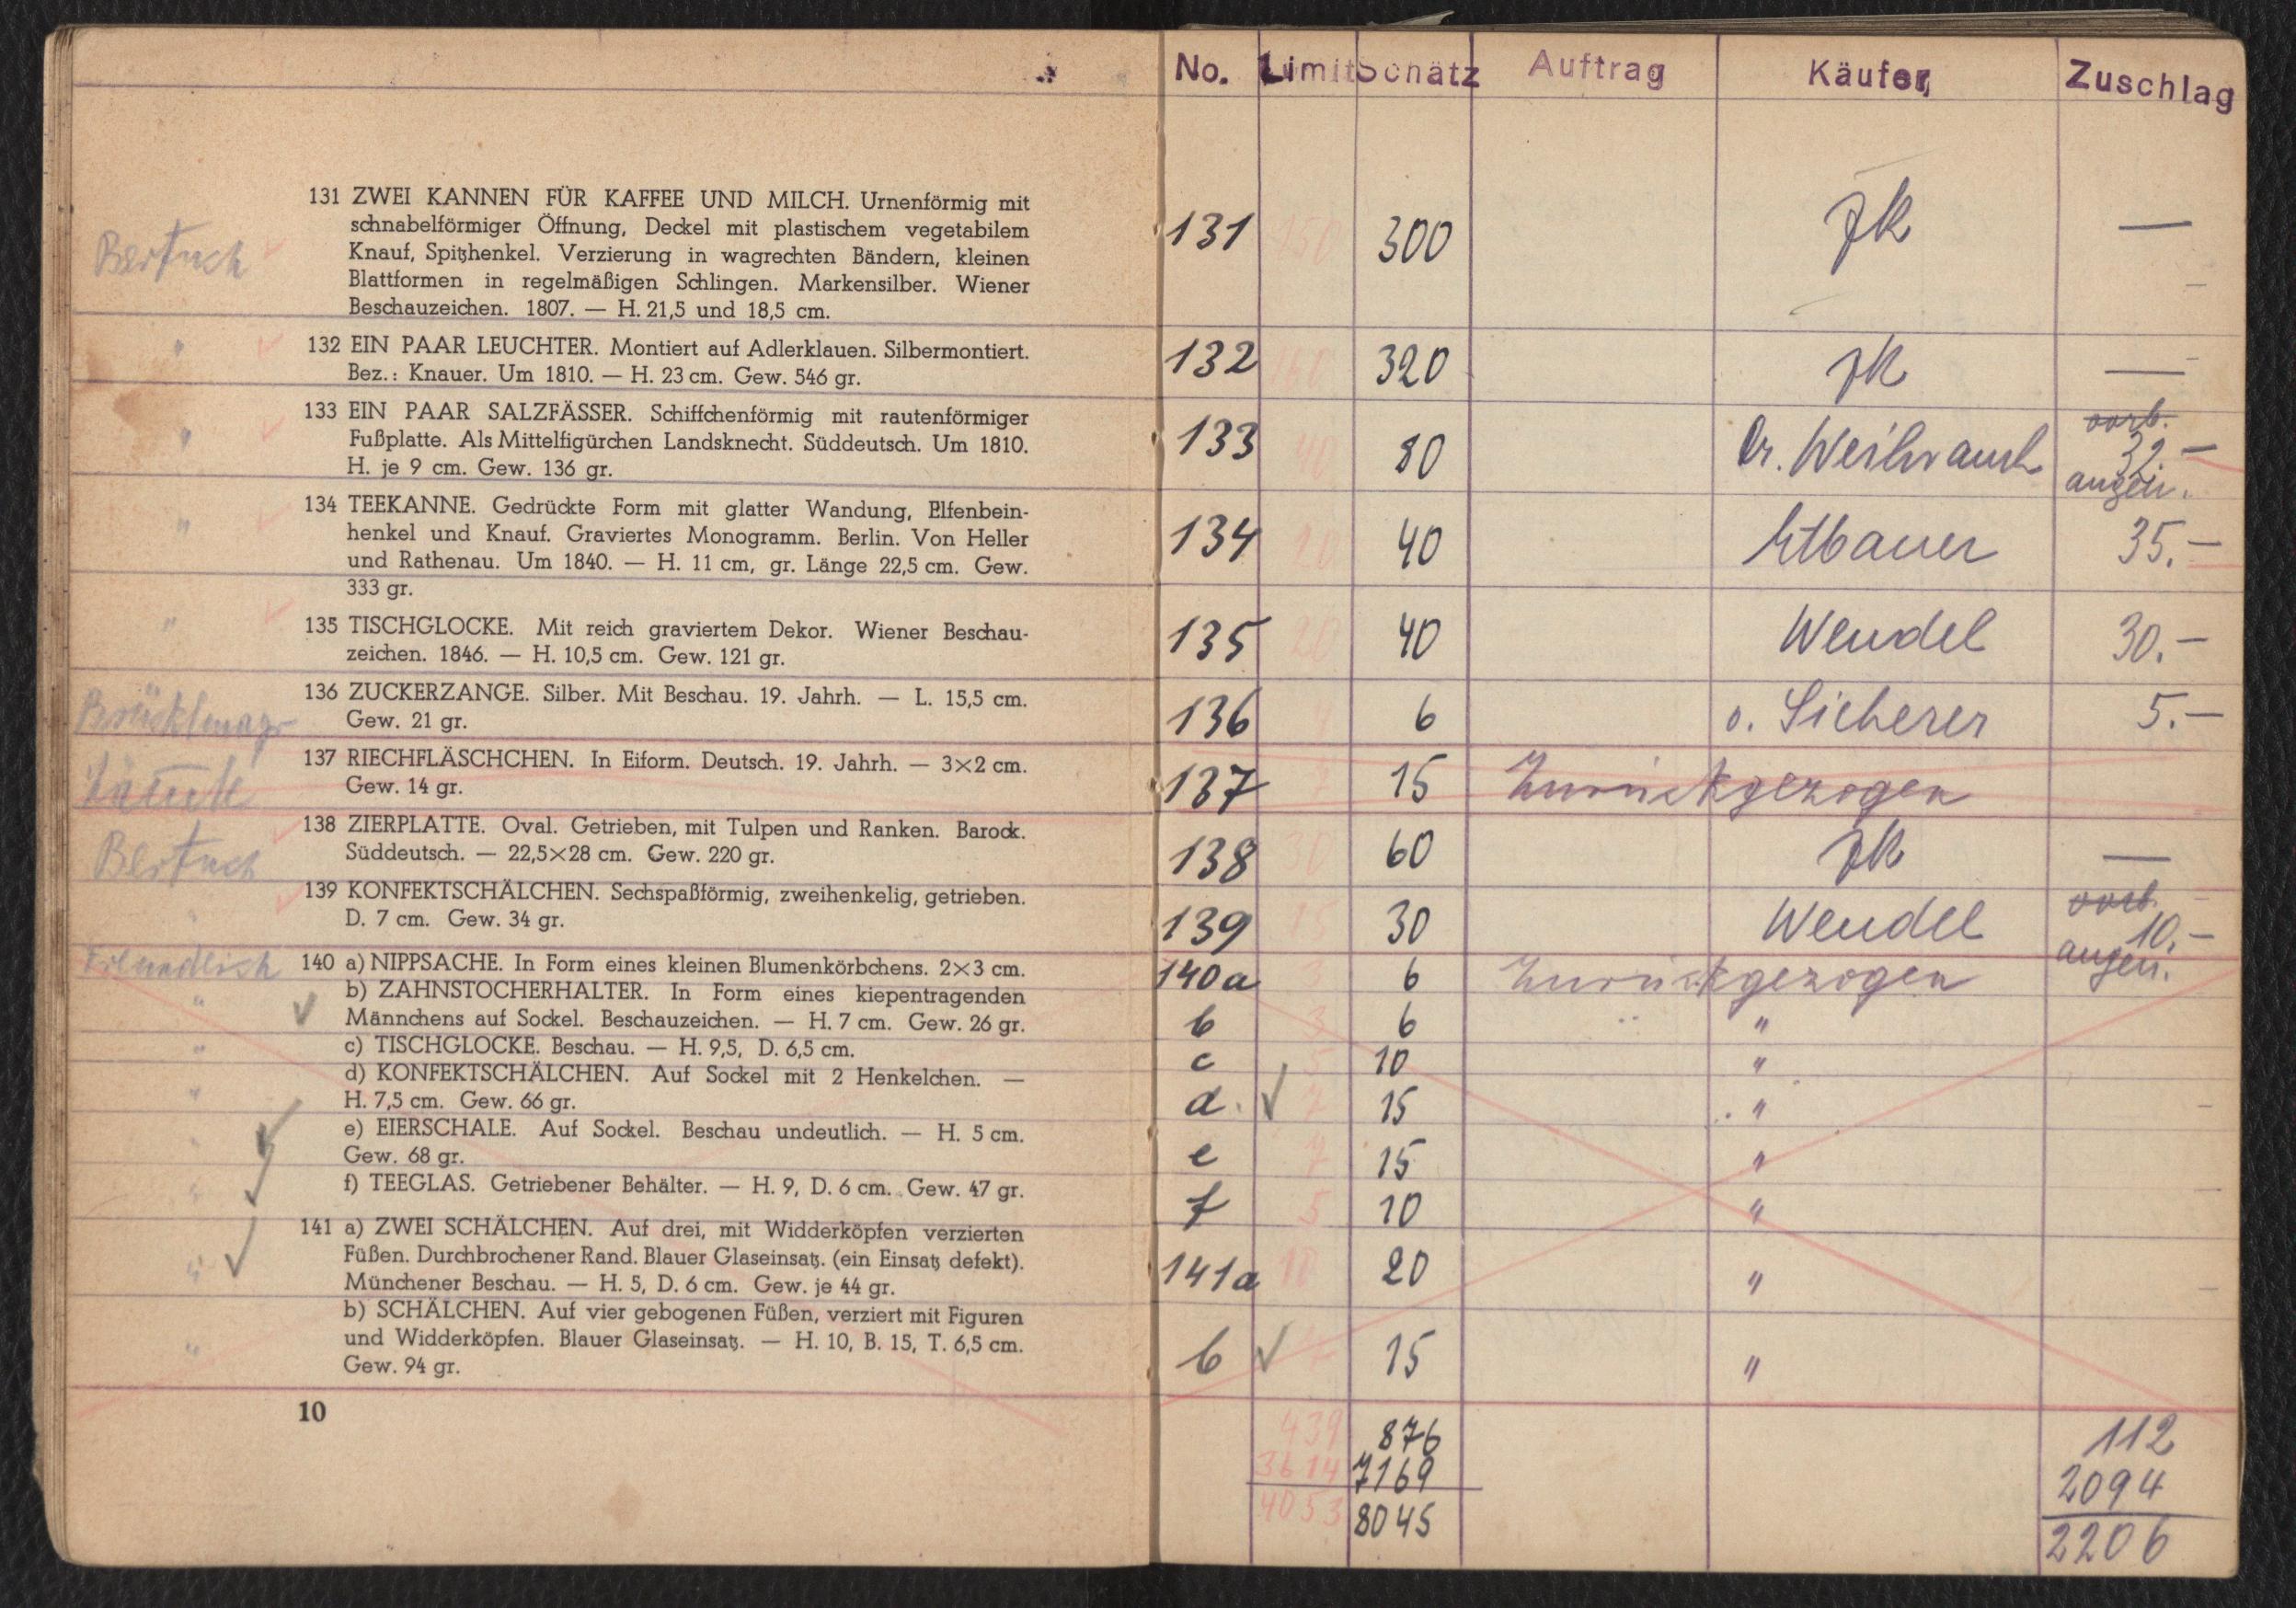 131 ZWEI KANNEN FÜR KAFFEE UND MILCH. Urnenförmig mit
schnabelförmiger Öffnung, Deckel mit plastischem vegetabilem
Knauf, Spitzhenkel. Verzierung in wagrechten Bändern, kleinen
Blattformen in regelmäßigen Schlingen. Markensilber. Wiener
Beschauzeichen. 1807. — H. 21,5 und 18,5 cm.
Bertuch
132 EIN PAAR LEUCHTER. Montiert auf Adlerklauen. Silbermontiert.
Bez.: Knauer. Um 1810. — H. 23 cm. Gew. 546 gr.
"
133 EIN PAAR SALZFÄSSER. Schiffchenförmig mit rautenförmiger
Fußplatte. Als Mittelfigürchen Landsknecht. Süddeutsch. Um 1810.
H. je 9 cm. Gew. 136 gr.
"
134 TEEKANNE. Gedrückte Form mit glatter Wandung, Elfenbein-
henkel und Knauf. Graviertes Monogramm. Berlin. Von Heller
und Rathenau. Um 1840. — H. 11 cm, gr. Länge 22,5 cm. Gew.
333 gr.
"
135 TISCHGLOCKE. Mit reich graviertem Dekor. Wiener Beschau-
zeichen. 1846. — H. 10,5 cm. Gew. 121 gr.
"
136 ZUCKERZANGE. Silber. Mit Beschau. 19. Jahrh. — L. 15,5 cm.
Gew. 21 gr.
137 RIECHFLÄSCHCHEN. In Eiform. Deutsch. 19. Jahrh. — 3×2 cm.
Gew. 14 gr.
138 ZIERPLATTE. Oval. Getrieben, mit Tulpen und Ranken. Barock.
Süddeutsch. — 22,5×28 cm. Gew. 220 gr.
Bertuch
139 KONFEKTSCHÄLCHEN. Sechspaßförmig, zweihenkelig, getrieben.
D. 7 cm. Gew. 34 gr.
"
140 a) NIPPSACHE. In Form eines kleinen Blumenkörbchens. 2×3 cm.
b) ZAHNSTOCHERHALTER. In Form eines kiepentragenden
Männchens auf Sockel. Beschauzeichen. — H. 7 cm. Gew. 26 gr.
c) TISCHGLOCKE. Beschau. — H. 9,5, D. 6,5 cm.
d) KONFEKTSCHÄLCHEN. Auf Sockel mit 2 Henkelchen. —
H. 7,5 cm. Gew. 66 gr.
e) EIERSCHALE. Auf Sockel. Beschau undeutlich. — H. 5 cm.
Gew. 68 gr.
f) TEEGLAS. Getriebener Behälter. — H. 9, D. 6 cm. Gew. 47 gr.
141 a) ZWEI SCHÄLCHEN. Auf drei, mit Widderköpfen verzierten
Füßen. Durchbrochener Rand. Blauer Glaseinsatz. (ein Einsatz defekt).
Münchener Beschau. — H. 5, D. 6 cm. Gew. je 44 gr.
b) SCHÄLCHEN. Auf vier gebogenen Füßen, verziert mit Figuren
und Widderköpfen. Blauer Glaseinsatz. — H. 10, B. 15, T. 6,5 cm.
Gew. 94 gr.
10
No. Limit Schätz Auftrag Käufer Zuschlag
131 150 300 —
132 160 320 —
133 40 80 Dr. Weihrauch vorb. 32.— angen.
134 20 40 35.—
135 20 40 Wendel 30.—
136 6 v. Sicherer 5.—
137 7 15 Zurückgezogen
138 30 60 —
139 15 30 Wendel vorb. 10.— angen.
140a 3 6 Zurückgezogen
b 3 6 "
c 5 10 "
d 7 15 "
e 7 15 "
f 5 10 "
141a 10 20 "
b 7 15 "
439 876 112
3614 7169 2094
4053 8045 2206